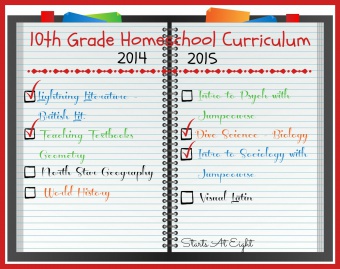 10th Grade Homeschool Curriculum
2014
2015
Lightning Literature
British Lit:
Teaching Textbooks
Geometry
North Star Geography
World History
Intro to Psych with
Jumpcourse
Dive Science - Biology
Intro to Sociology with
Jumpcourse
Visual Latin
Starts At Eight